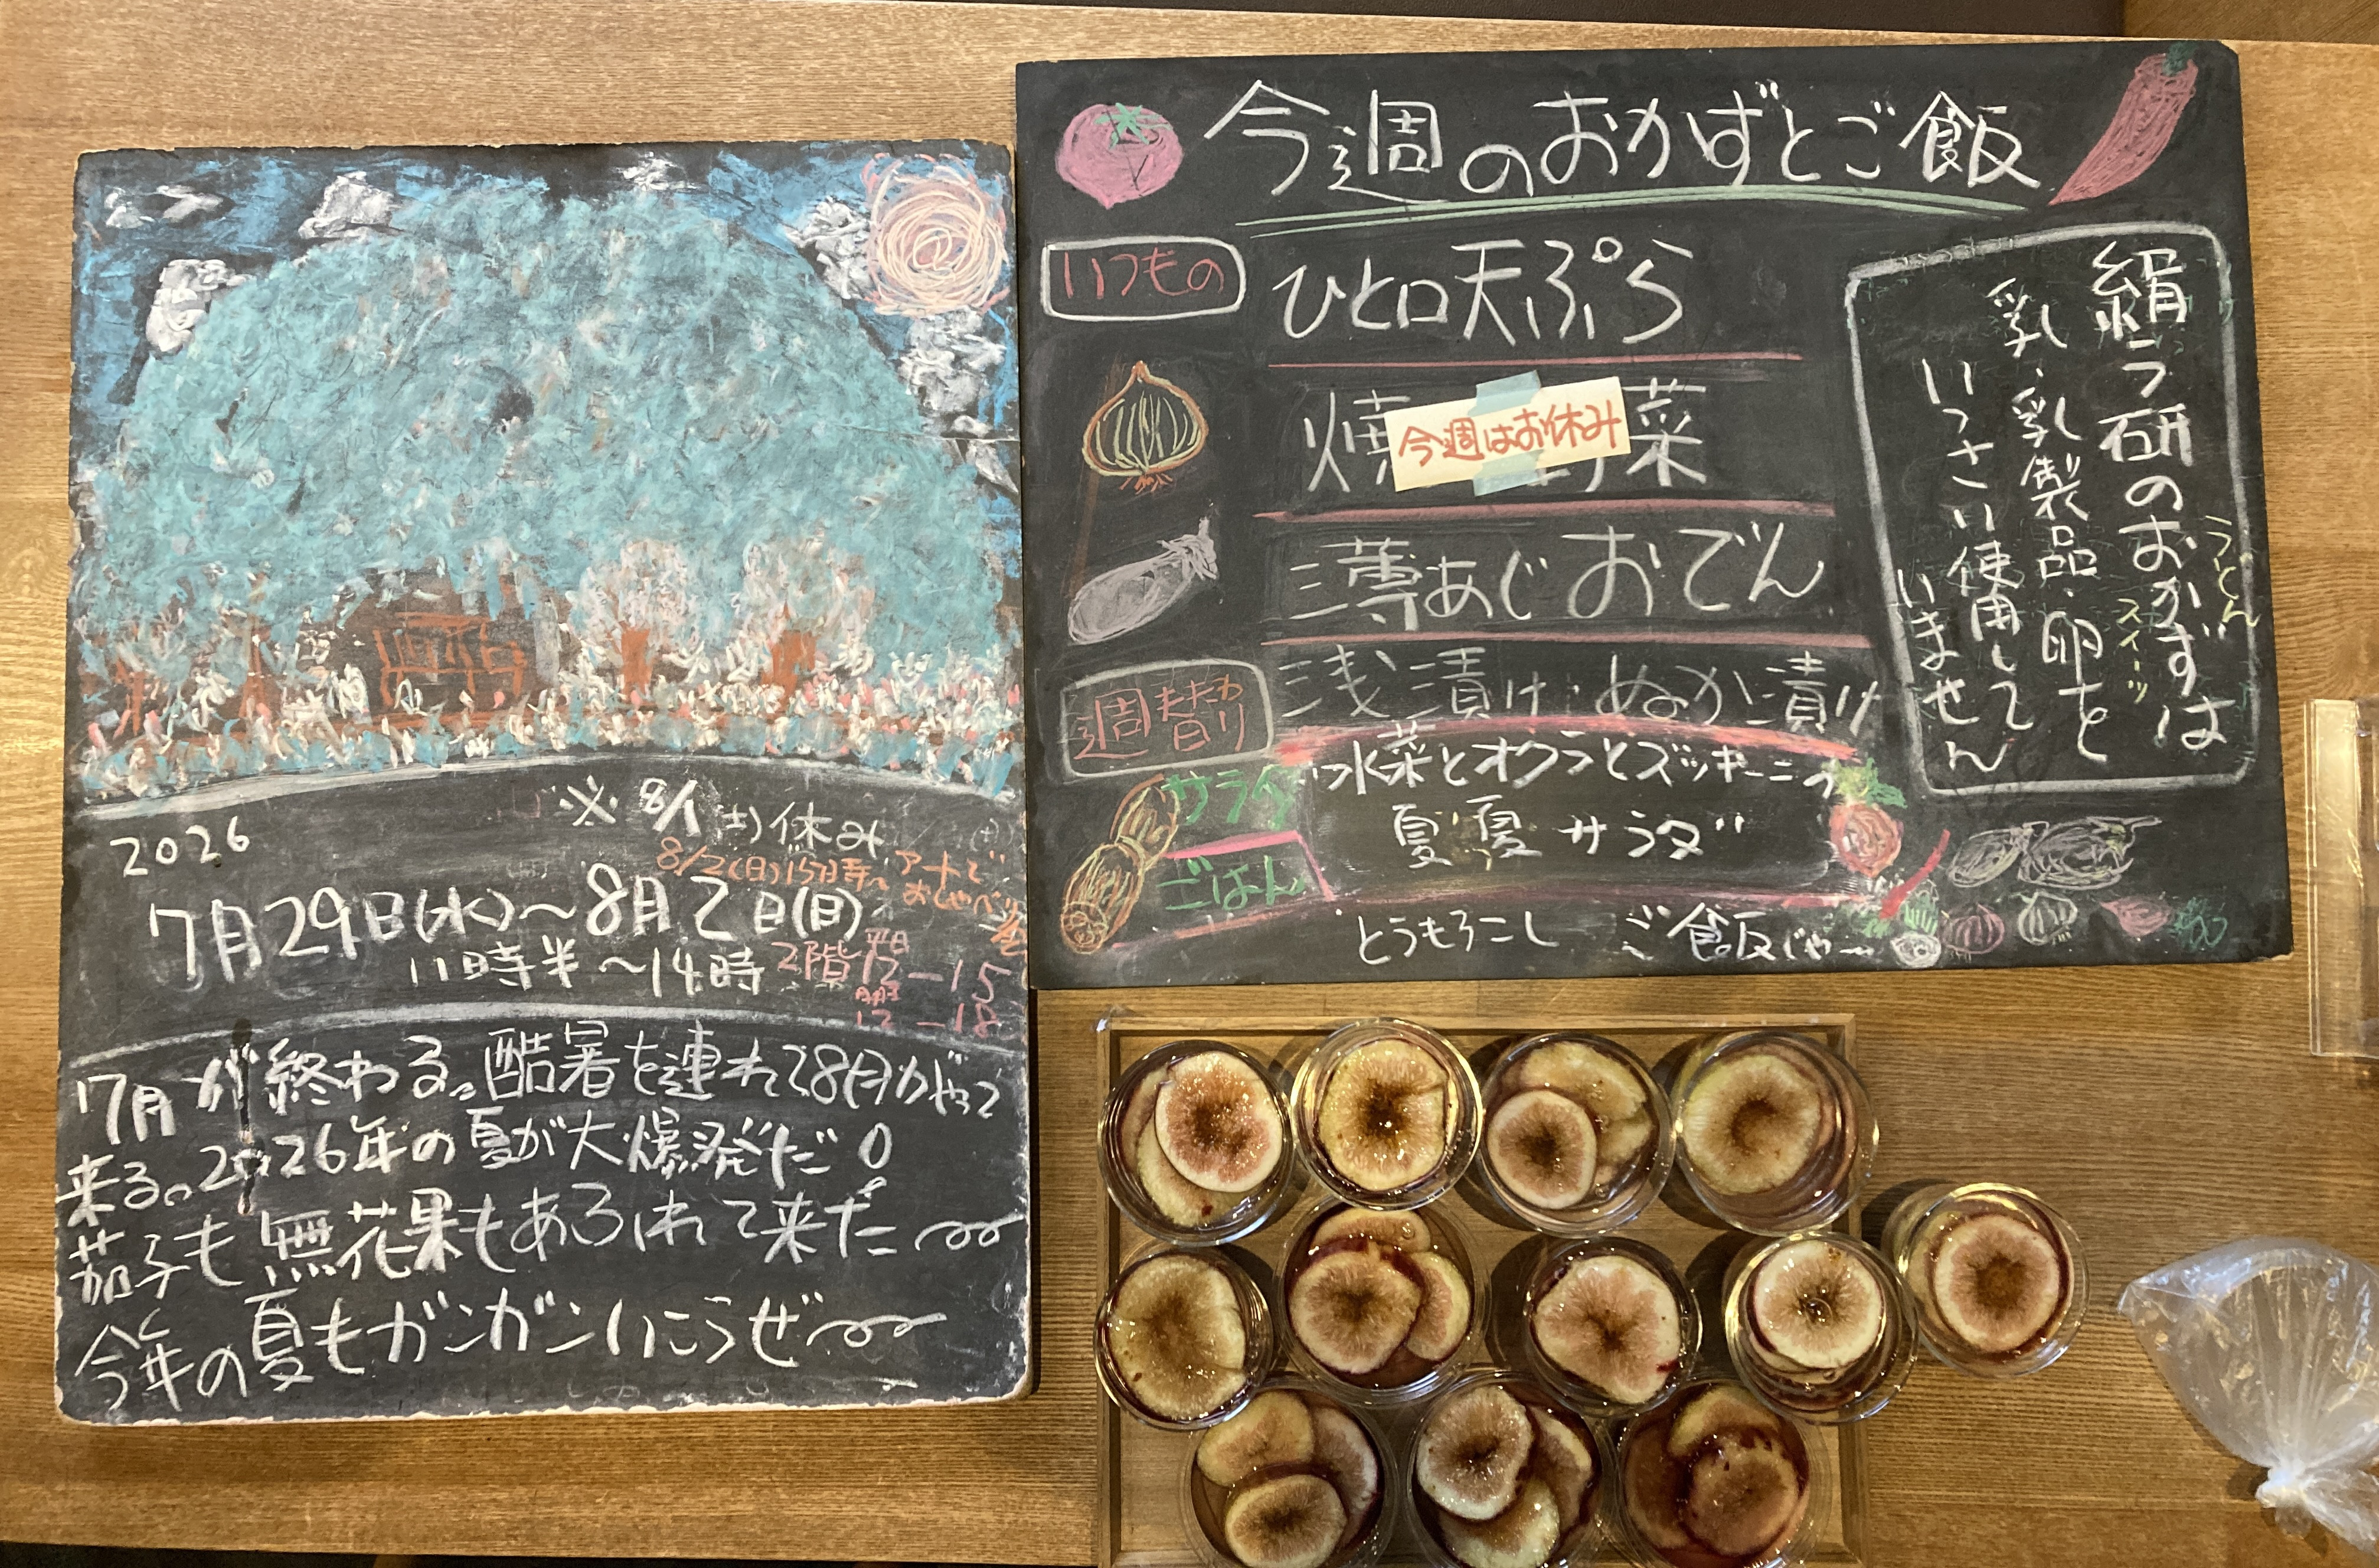 2026
※ 8/1 (土)休み
8/2(日)15時〜 アートで
おしゃべり会
7月29日(水)〜8月2日(日)
11時半〜14時
2階 平日 12−15
12−18
7月が終わる。酷暑を連れて8月がやって
来る。2026年の夏が大爆発だ!
茄子も無花果もあらわれて来た〜
今年の夏もガンガンいこうぜ〜
今週のおかずとご飯
いつもの
ひと口天ぷら
焼 菜
今週はお休み
薄あじおでん
浅漬け・ぬか漬け
週替わり
サラダ
水菜とオクラとズッキーニの
夏夏サラダ
ごはん
とうもろこし ご飯じゃ〜
絹ラ研のおかずは
うどん
スイーツ
乳・乳製品・卵を
いっさい使用して
いません